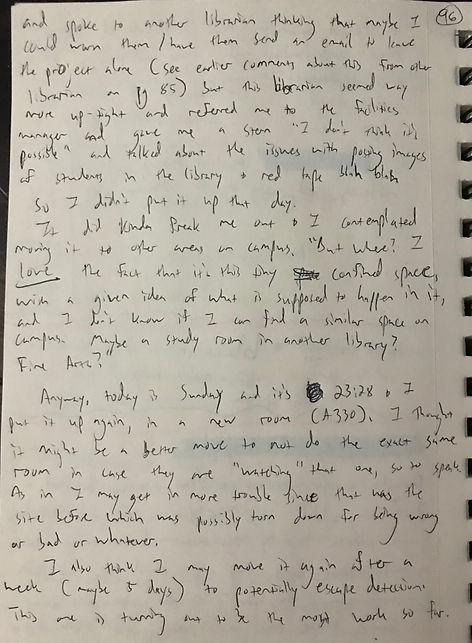 96
and spoke to another librarian thinking that maybe I
could warn them / have them send an email to leave
the project alone (see earlier comments about this from other
librarian on pg 85) but this librarian seemed way
more up-tight and referred me to the facilities
manager and gave me a stern "I don't think it's
possible" and talked about the issues with posing images
of students in the library + red tape blah blah
So I didn't put it up that day.
It did kinda freak me out + I contemplated
moving it to other areas on campus. "But where? I
love the fact that it's this tiny confined space,
with a given idea of what is supposed to happen in it,
and I don't know if I can find a similar space on
campus. Maybe a study room in another library?
Fine Arts?"
Anyway, today is Sunday and it's 23:28 + I
put it up again, in a new room (A330). I thought
it might be a better move to not do the exact same
room in case they are "watching" that one, so to speak.
As in I may get in more trouble since that was the
site before which was possibly torn down for being wrong
or bad or whatever.
I also think I may move it again after a
week (maybe 5 days) to potentially escape detection.
This one is turning out to be the most work so far.